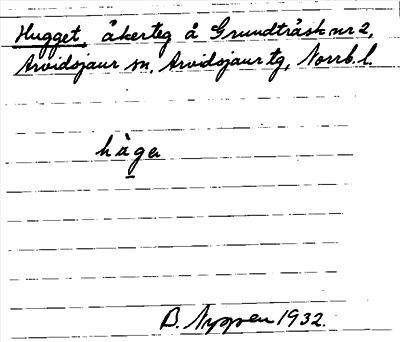 Hugget, åkerteg å Grundträsk nr 2,
Arvidsjaur sn, Arvidsjaur tg, Norrb. l.
hàga
B. Nyppen 1932.